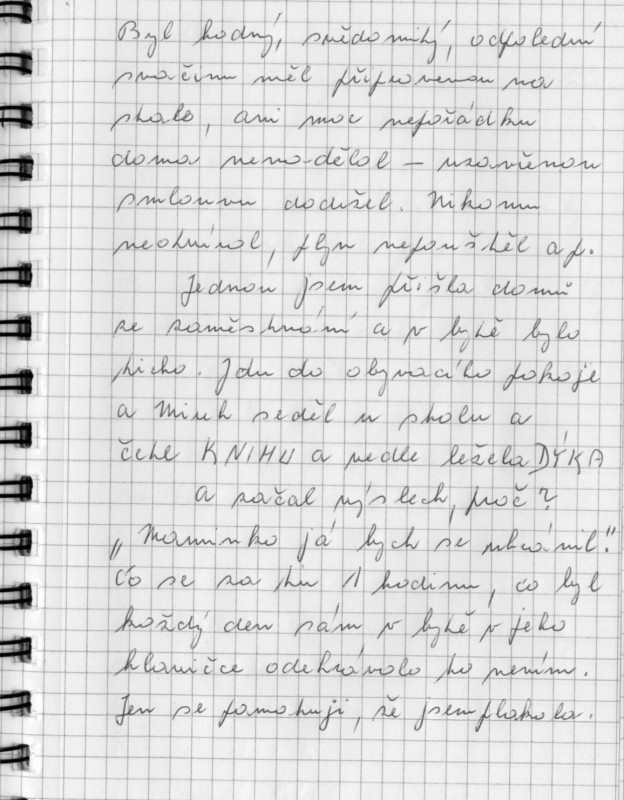 Byl hodný, svědomitý, odpolední
svačinu měl připravenou na
stole, ani moc nepořádku
doma nenadělal – uzavřenou
smlouvu dodržel. Nikomu
neotvíral, plyn nepouštěl a p.
Jednou jsem přišla domů
ze zaměstnání a v bytě bylo
ticho. Jdu do obývacího pokoje
a Mirek seděl u stolu a
četl KNIHU a vedle ležela DÝKA
a začal výslech, proč?
„Maminko já bych se ubránil."
Co se za tu 1 hodinu, co byl
každý den sám v bytě v jeho
hlavičce odehrávalo to nevím.
Jen se pamatuji, že jsem plakala.